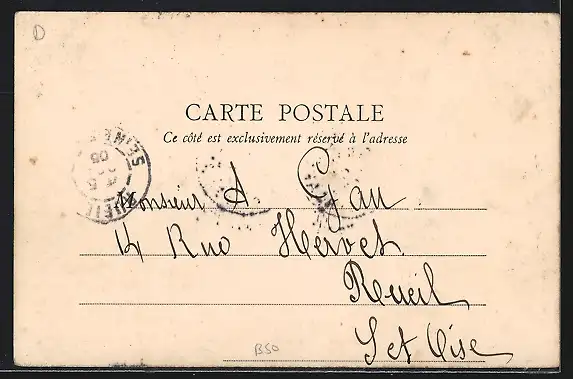 D
CARTE POSTALE
Ce côté est exclusivement réservé à l'adresse
Monsieur A Gan
14 Rue Hervet
Rueil
S et Oise
B50